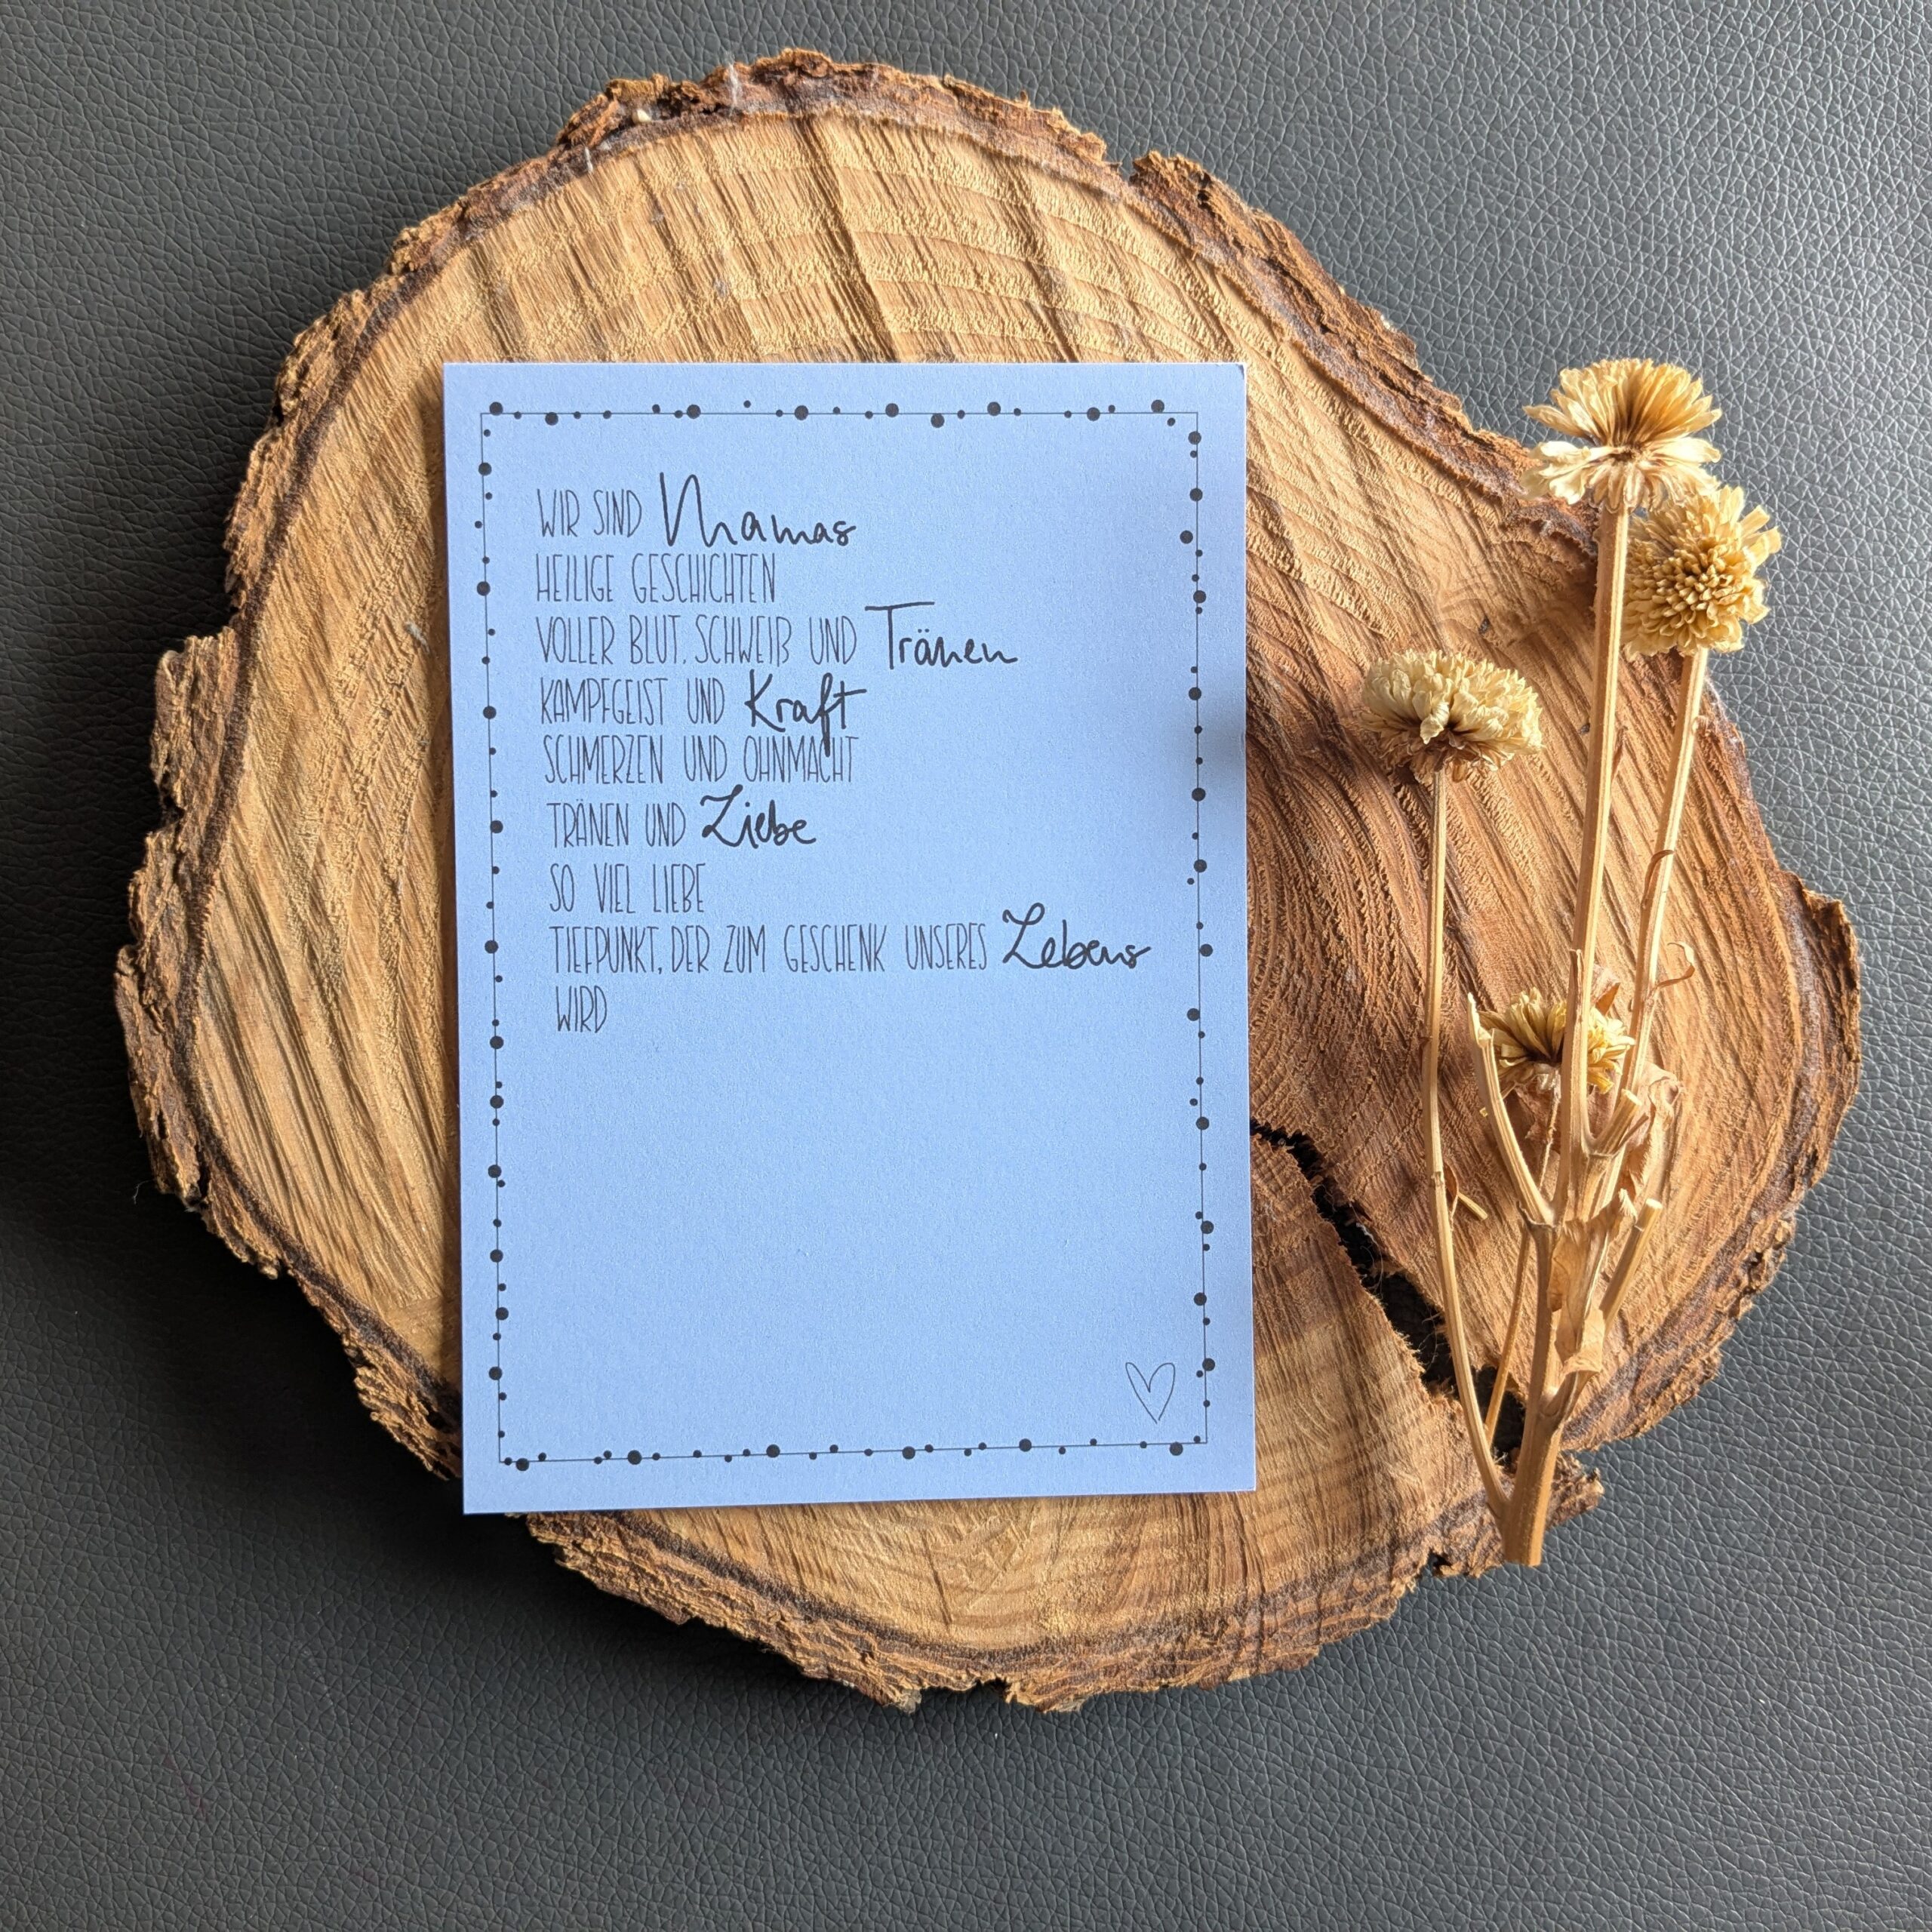 WIR SIND Mamas
HEILIGE GESCHICHTEN
VOLLER BLUT, SCHWEIß UND Tränen
KAMPFGEIST UND Kraft
SCHMERZEN UND OHNMACHT
TRÄNEN UND Liebe
SO VIEL LIEBE
TIEFPUNKT, DER ZUM GESCHENK UNSERES Lebens
WIRD